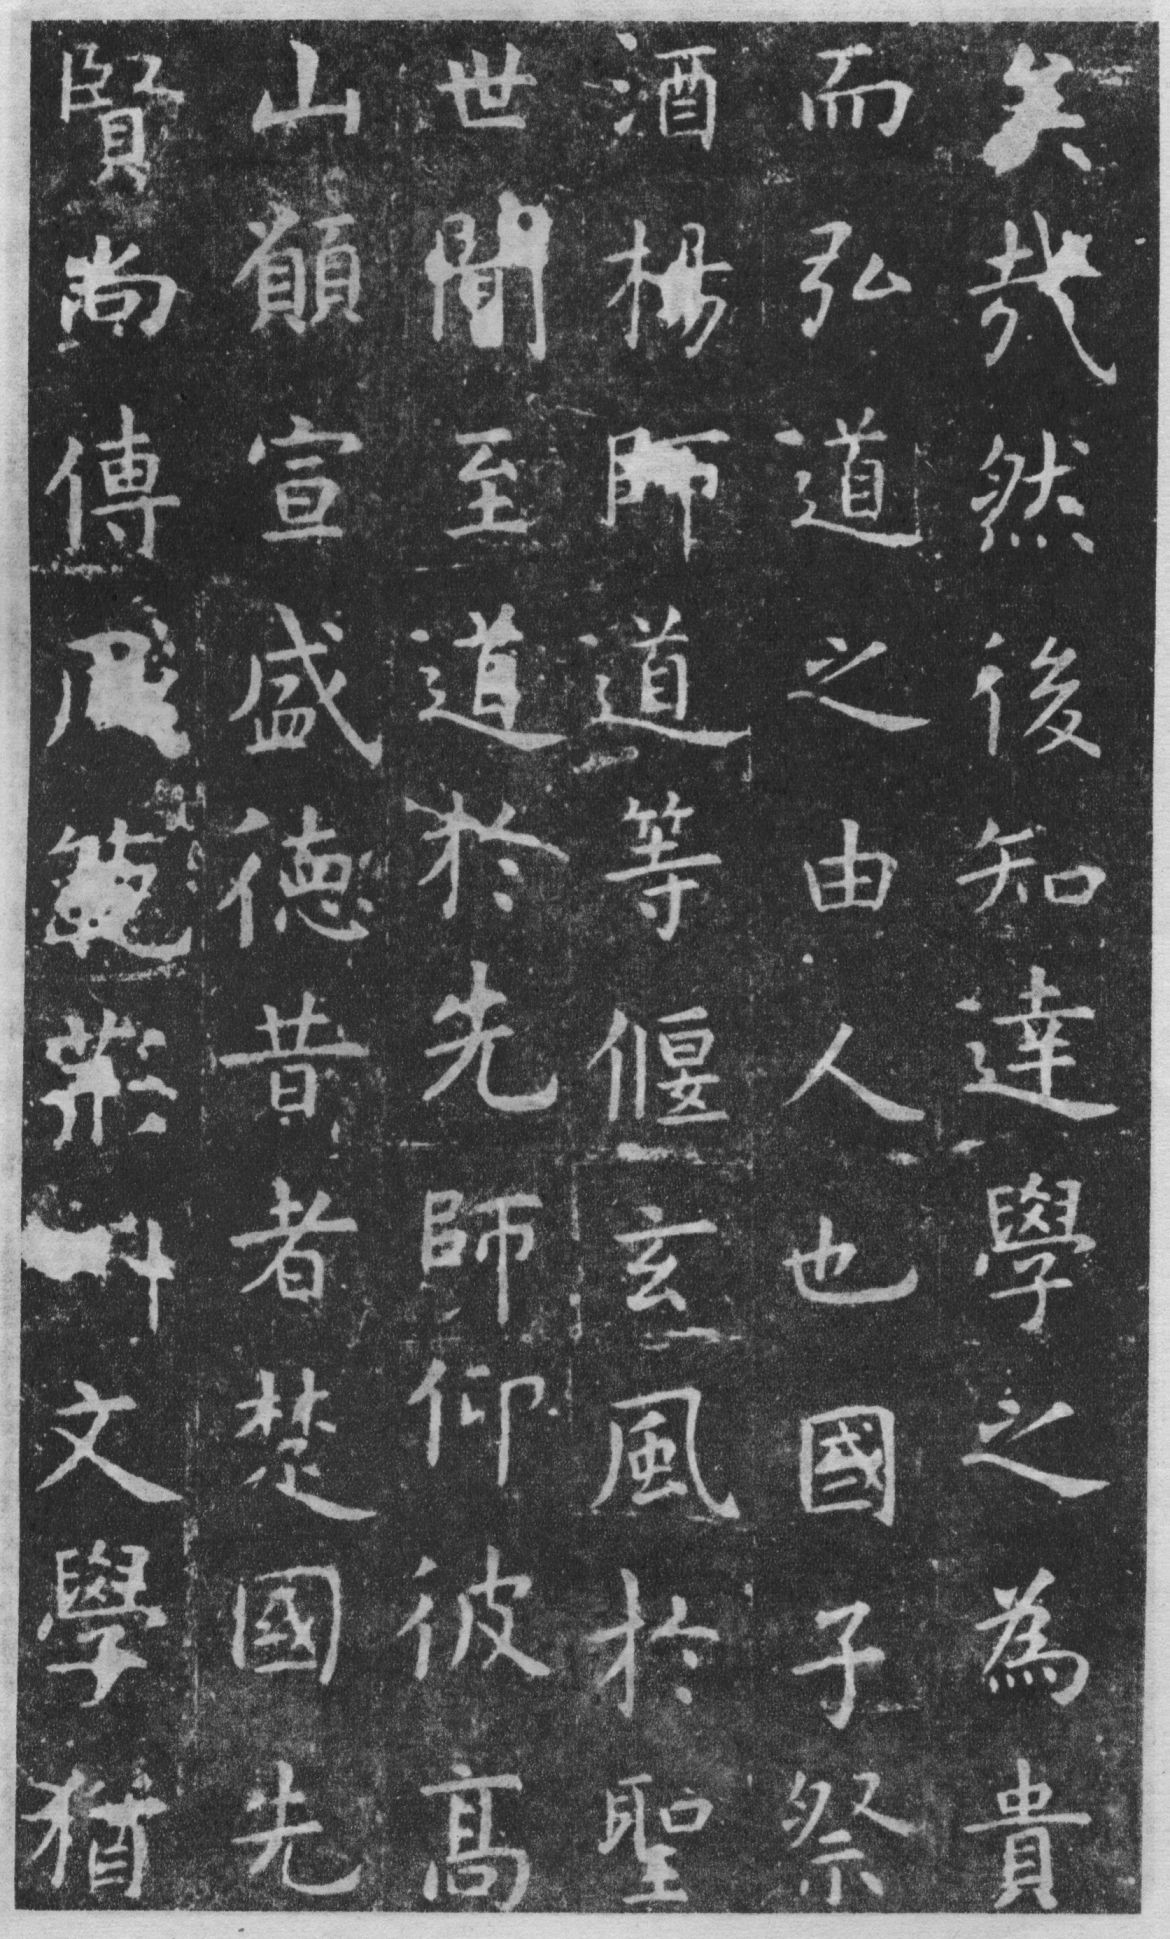 矣哉然後知達學之為貴
而弘道之由人也國子祭
酒楊師道等偃玄風於聖
世聞至道於先師仰彼高
山願宣盛德昔者楚國先
賢尚傳風範荊州文學猶